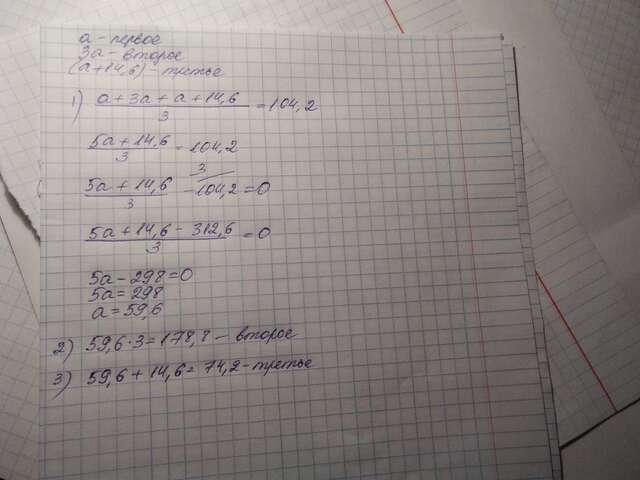 a - первое
3a - второе
(a+14,6) - третье
1) a + 3a + a + 14,6
3
= 104,2
5a + 14,6
3
= 104,2
3
5a + 14,6
3
- 104,2 = 0
5a + 14,6 - 312,6
3
= 0
5a - 298 = 0
5a = 298
a = 59,6
2) 59,6 · 3 = 178,8 - второе
3) 59,6 + 14,6 = 74,2 - третье